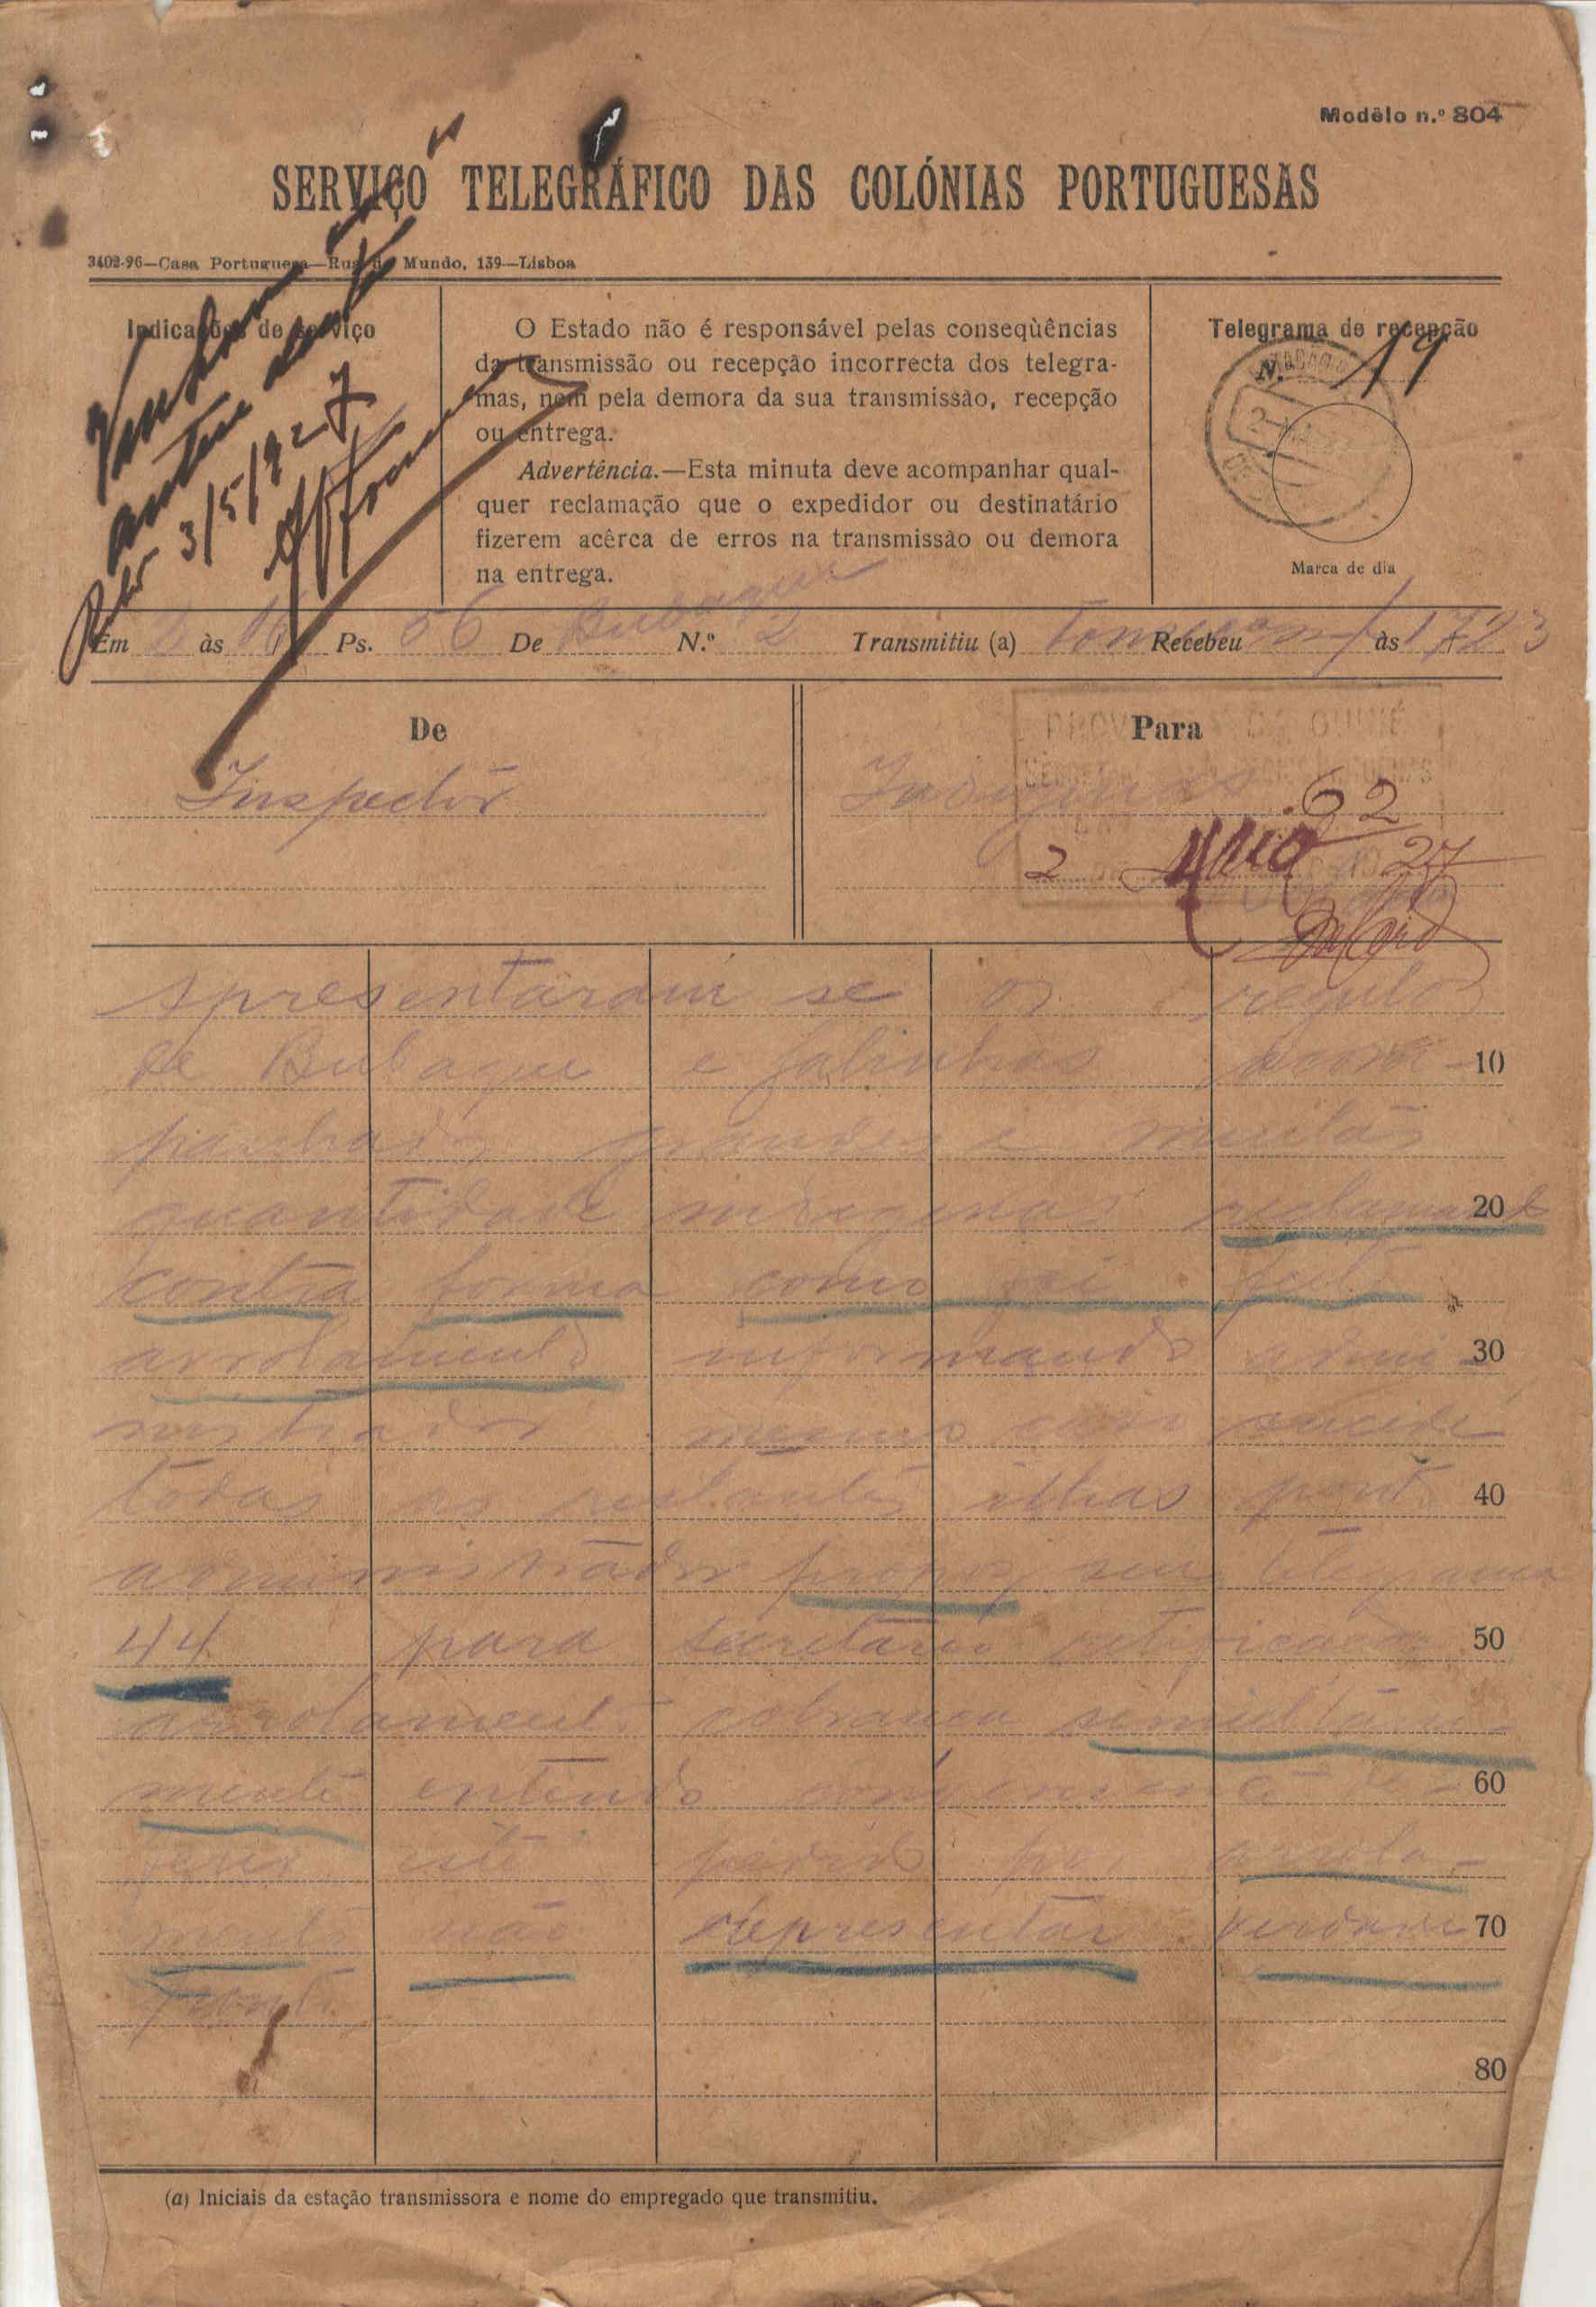 Modêlo n.º 804
SERVIÇO TELEGRÁFICO DAS COLÓNIAS PORTUGUESAS
3402-96—Casa Portuguesa—Rua do Mundo, 139—Lisboa
Indicações de serviço
3/5/927
O Estado não é responsável pelas conseqùências
da transmissão ou recepção incorrecta dos telegra-
mas, nem pela demora da sua transmissão, recepção
ou entrega.
Advertência.—Esta minuta deve acompanhar qual-
quer reclamação que o expedidor ou destinatário
fizerem acêrca de erros na transmissão ou demora
na entrega.
Telegrama de recepção
N.º 19
Marca de dia
Em 2 às 16 Ps. 56 De Bubaque N.º 2 Transmitiu (a) Recebeu às 1723
De
Inspector
Para
PROVINCIA DA GUINÉ
Indigenas
62
2 Maio 27
Apresentaram se os regulos
de Bubaque e Galinhas acom-
10
panhados grandes e muitas
quantidade indigenas reclamando
20
contra forma como foi feito
arrolamento informando admi-
30
nistrador mesmo caso sucede
todas as restantes ilhas ponto
40
administrador propoz seu telegrama
44 para secretario retificacao
50
arrolamento cobranca simultanea-
mente entendo
60
este pedido por arrola-
mento não representar verdade
70
ponto
80
(a) Iniciais da estação transmissora e nome do empregado que transmitiu.